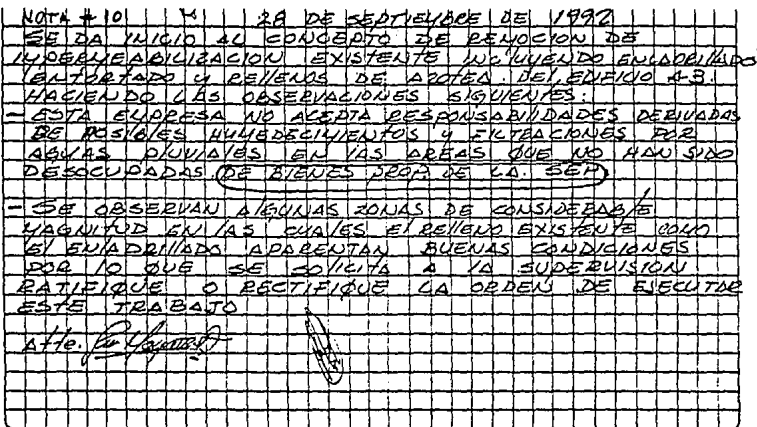 NOTA # 10 28 DE SEPTIEMBRE DE 1992
SE DA INICIO AL CONCEPTO DE REMOCION DE
IMPERMEABILIZACION EXISTENTE INCLUYENDO ENLADRILLADO
ENTORTADO Y RELLENOS DE AZOTEA DEL EDIFICIO A-3.
HACIENDO LAS OBSERVACIONES SIGUIENTES:
- ESTA EMPRESA NO ACEPTA RESPONSABILIDADES DERIVADAS
DE POSIBLES HUMEDECIMIENTOS Y FILTRACIONES POR
AGUAS PLUVIALES EN LAS AREAS QUE NO HAN SIDO
DESOCUPADAS. DE BIENES PROP. DE LA. SEP
- SE OBSERVAN ALGUNAS ZONAS DE CONSIDERABLE
MAGNITUD EN LAS CUALES EL RELLENO EXISTENTE COMO
EL ENLADRILLADO APARENTAN BUENAS CONDICIONES
POR LO QUE SE SOLICITA A LA SUPERVISION
RATIFIQUE O RECTIFIQUE LA ORDEN DE EJECUTAR
ESTE TRABAJO
Atte.